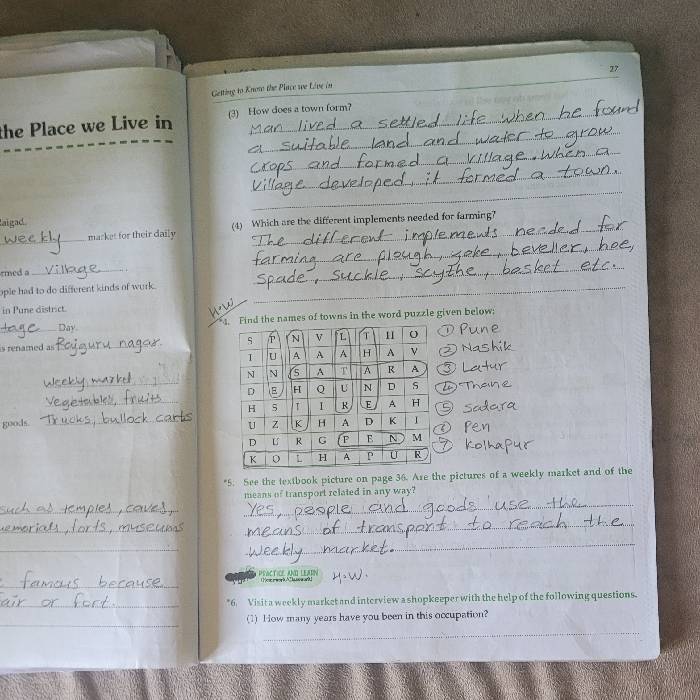 the Place we Live in
Raigad.
weekly market for their daily
rmed a Village
ople had to do different kinds of work.
in Pune district.
tage Day.
is renamed as Rajguru nagar.
Weekly market
Vegetables, fruits
goods. Trucks, bullock carts
such as temples, caves,
memorials, forts, museums
famous because
air or fort.
Getting to Know the Place we Live in
27
(3) How does a town form?
Man lived a settled life when he found
a suitable land and water to grow
crops and formed a village. When a
Village developed, it formed a town.
(4) Which are the different implements needed for farming?
The different implements needed for
farming are plough, yoke, beveller, hoe,
spade, suckle, scythe, basket etc.
H.W
*4. Find the names of towns in the word puzzle given below:
S P N V L T H O
I U A A A H A V
N N S A T A R A
D E H Q U N D S
H S I I R E A H
U Z K H A D K I
D U R G P E N M
K O L H A P U R
① Pune
② Nashik
③ Latur
④ Thane
⑤ sadara
⑥ Pen
⑦ Kolhapur
*5. See the textbook picture on page 36. Are the pictures of a weekly market and of the
means of transport related in any way?
Yes, people and goods use the
means of transport to reach the
weekly market.
PRACTICE AND LEARN
(Homework/Classwork)
H.W.
*6. Visit a weekly market and interview a shopkeeper with the help of the following questions.
(1) How many years have you been in this occupation?